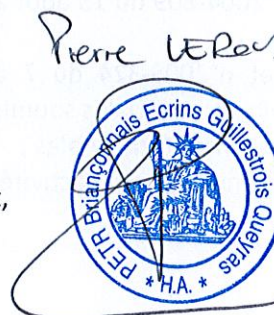 Pierre LEROUX
PETR Briançonnais Ecrins Guillestrois Queyras
* H.A. *